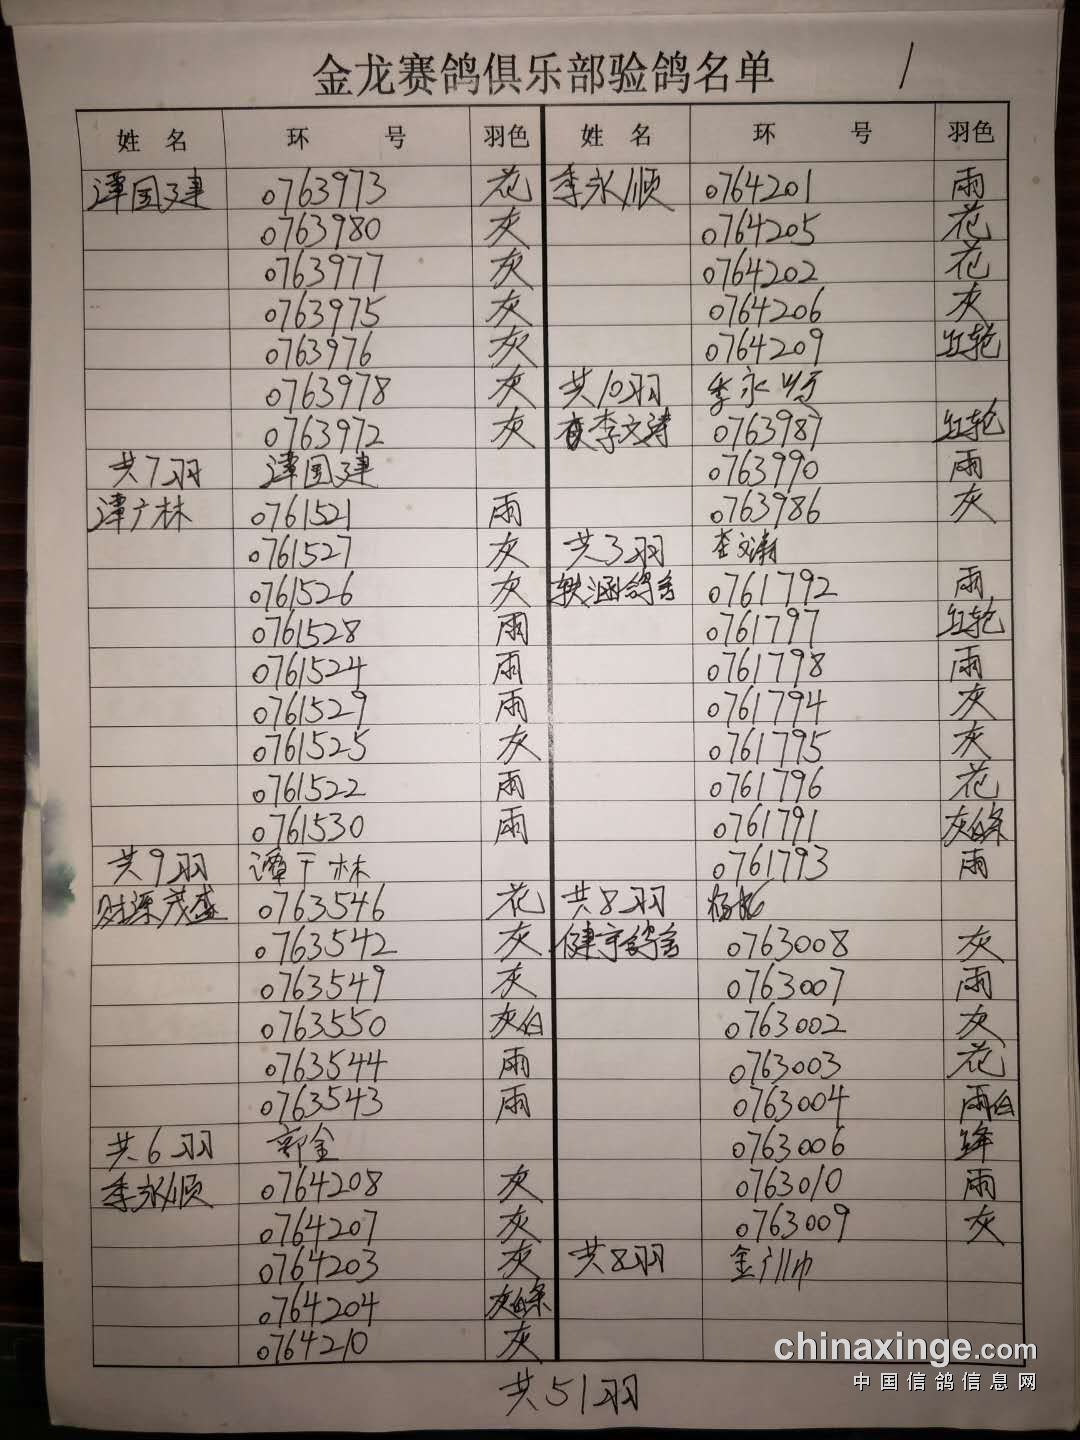 金龙赛鸽俱乐部验鸽名单
1
姓 名 环 号 羽色
谭国建 0763973 花
0763980 灰
0763977 灰
0763975 灰
0763976 灰
0763978 灰
0763972 灰
共7羽 谭国建
谭广林 0761521 雨
0761527 灰
0761526 灰
0761528 雨
0761524 雨
0761529 雨
0761525 灰
0761522 雨
0761530 雨
共9羽 谭广林
财源茂盛 0763546 花
0763542 灰
0763549 灰
0763550 灰白
0763544 雨
0763543 雨
共6羽 郭金
李永顺 0764208 灰
0764207 灰
0764203 灰
0764204 灰白条
0764210 灰
姓 名 环 号 羽色
李永顺 0764201 雨
0764205 花
0764202 花
0764206 灰
0764209 红轮
共10羽 李永顺
李文涛 0763987 红轮
0763990 雨
0763986 灰
共3羽 李文涛
轶涵鸽舍 0761792 雨
0761797 红轮
0761798 雨
0761794 灰
0761795 灰
0761796 花
0761791 灰白条
0761793 雨
共8羽
健宇鸽舍 0763008 灰
0763007 雨
0763002 灰
0763003 花
0763004 雨白
0763006 绛
0763010 雨
0763009 灰
共8羽
共51羽
chinaxinge.com
中国信鸽信息网